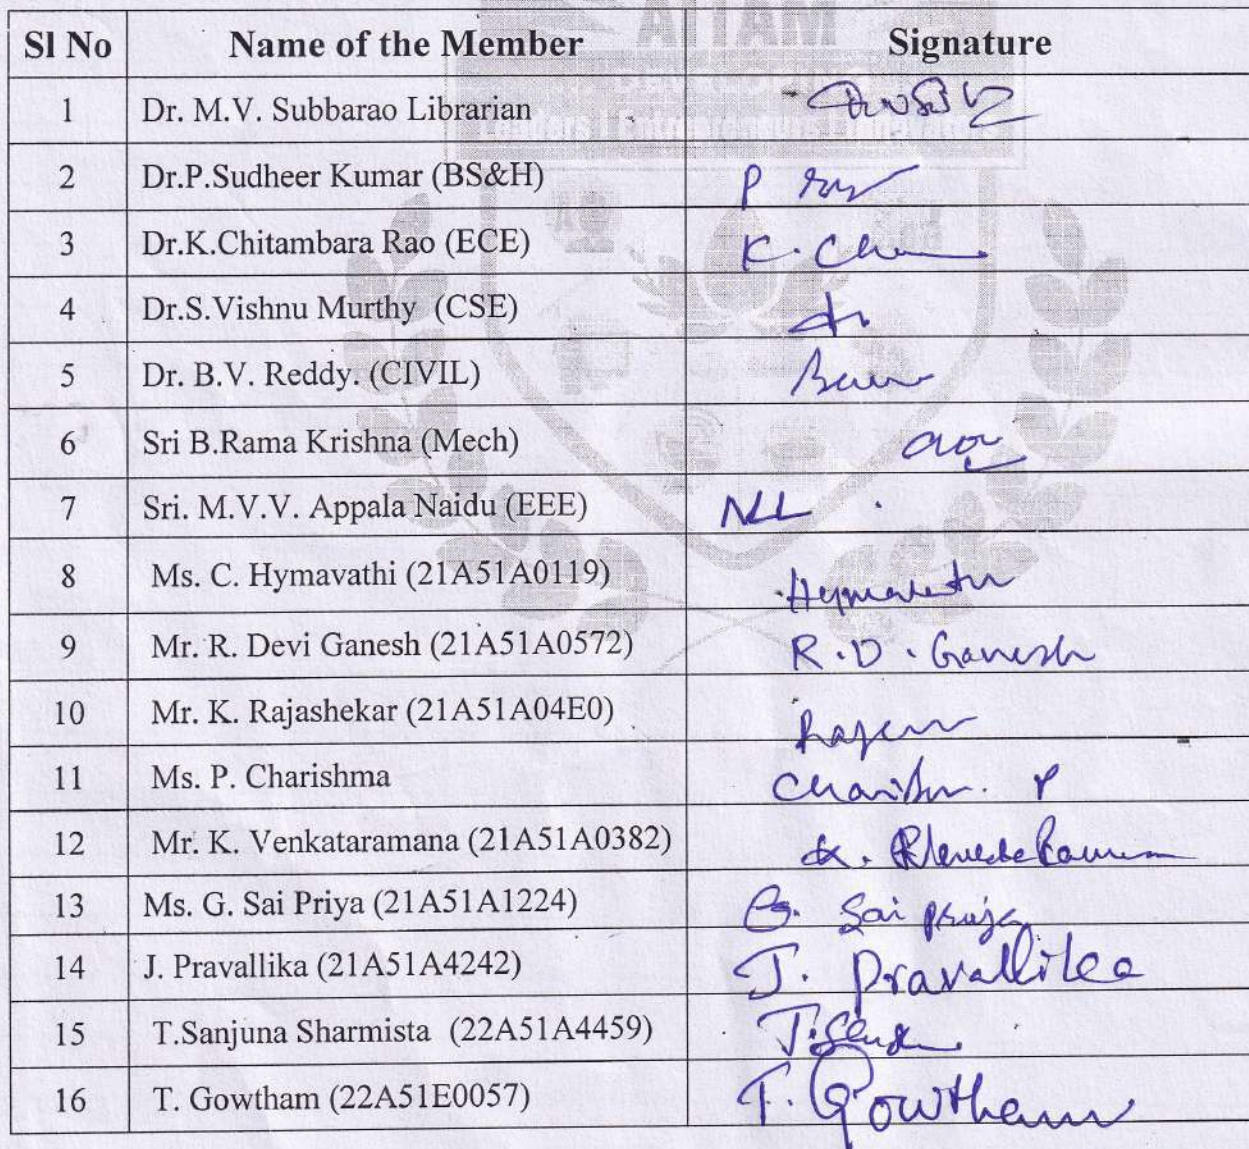 AITAM
Sl No Name of the Member Signature
1 Dr. M.V. Subbarao Librarian
2 Dr.P.Sudheer Kumar (BS&H) P
3 Dr.K.Chitambara Rao (ECE) K.
4 Dr.S.Vishnu Murthy (CSE)
5 Dr. B.V. Reddy. (CIVIL)
6 Sri B.Rama Krishna (Mech)
7 Sri. M.V.V. Appala Naidu (EEE)
8 Ms. C. Hymavathi (21A51A0119) Hymavathi
9 Mr. R. Devi Ganesh (21A51A0572) R.D. Ganesh
10 Mr. K. Rajashekar (21A51A04E0)
11 Ms. P. Charishma
12 Mr. K. Venkataramana (21A51A0382) K.
13 Ms. G. Sai Priya (21A51A1224) G. Sai priya
14 J. Pravallika (21A51A4242) J. Pravallika
15 T.Sanjuna Sharmista (22A51A4459)
16 T. Gowtham (22A51E0057) T. Gowtham